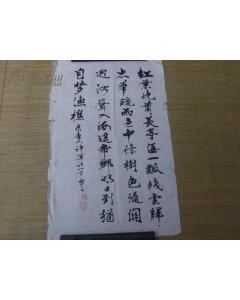 紅葉晚蕭長亭酒一瓢殘雲歸
太華疏雨過中條樹色隨關
迥河聲入海遥帝鄉明日到猶
自夢漁樵
許渾詩一首